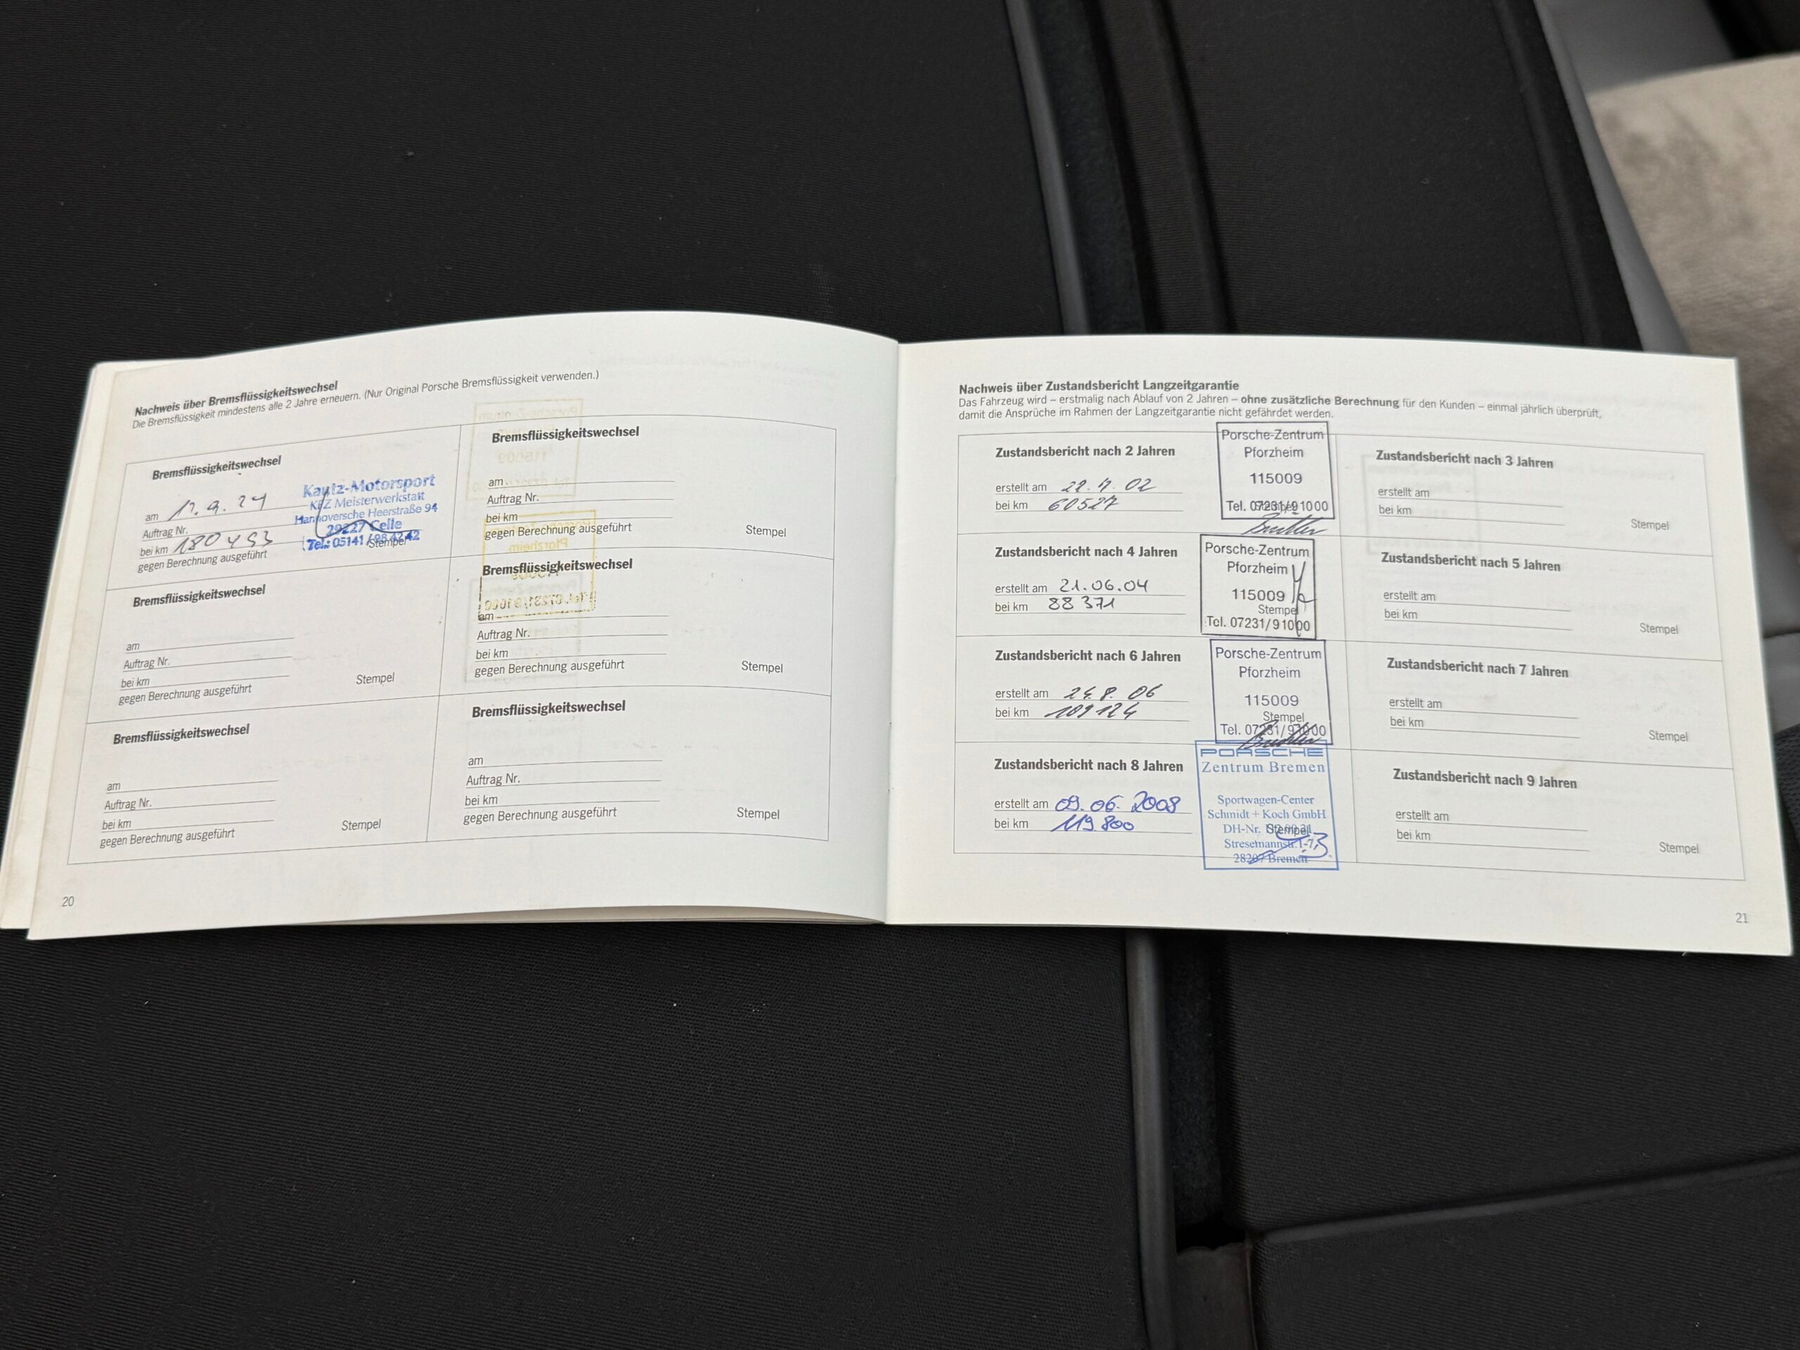 Nachweis über Bremsflüssigkeitswechsel
Die Bremsflüssigkeit mindestens alle 2 Jahre erneuern. (Nur Original Porsche Bremsflüssigkeit verwenden.)
Bremsflüssigkeitswechsel
am 17.9.24
Auftrag Nr.
bei km 180453
gegen Berechnung ausgeführt
Kautz-Motorsport
KFZ Meisterwerkstatt
Hannoversche Heerstraße 94
29227 Celle
Tel.: 05141 /
Stempel
Bremsflüssigkeitswechsel
am
Auftrag Nr.
bei km
gegen Berechnung ausgeführt
Stempel
Bremsflüssigkeitswechsel
am
Auftrag Nr.
bei km
gegen Berechnung ausgeführt
Stempel
Bremsflüssigkeitswechsel
am
Auftrag Nr.
bei km
gegen Berechnung ausgeführt
Stempel
Bremsflüssigkeitswechsel
am
Auftrag Nr.
bei km
gegen Berechnung ausgeführt
Stempel
Bremsflüssigkeitswechsel
am
Auftrag Nr.
bei km
gegen Berechnung ausgeführt
Stempel
20
Nachweis über Zustandsbericht Langzeitgarantie
Das Fahrzeug wird – erstmalig nach Ablauf von 2 Jahren – ohne zusätzliche Berechnung für den Kunden – einmal jährlich überprüft,
damit die Ansprüche im Rahmen der Langzeitgarantie nicht gefährdet werden.
Zustandsbericht nach 2 Jahren
erstellt am 22.7.02
bei km 60527
Porsche-Zentrum
Pforzheim
115009
Tel. 07231/91000
Zustandsbericht nach 3 Jahren
erstellt am
bei km
Stempel
Zustandsbericht nach 4 Jahren
erstellt am 21.06.04
bei km 88 371
Porsche-Zentrum
Pforzheim
115009
Stempel
Tel. 07231/91000
Zustandsbericht nach 5 Jahren
erstellt am
bei km
Stempel
Zustandsbericht nach 6 Jahren
erstellt am 24.8.06
bei km 109124
Porsche-Zentrum
Pforzheim
115009
Stempel
Tel. 07231/91000
Zustandsbericht nach 7 Jahren
erstellt am
bei km
Stempel
Zustandsbericht nach 8 Jahren
erstellt am 09.06.2008
bei km 119 800
PORSCHE
Zentrum Bremen
Sportwagen-Center
Schmidt + Koch GmbH
DH-Nr. Stempel
Stresemannstr. 1-7
28207 Bremen
Zustandsbericht nach 9 Jahren
erstellt am
bei km
Stempel
21